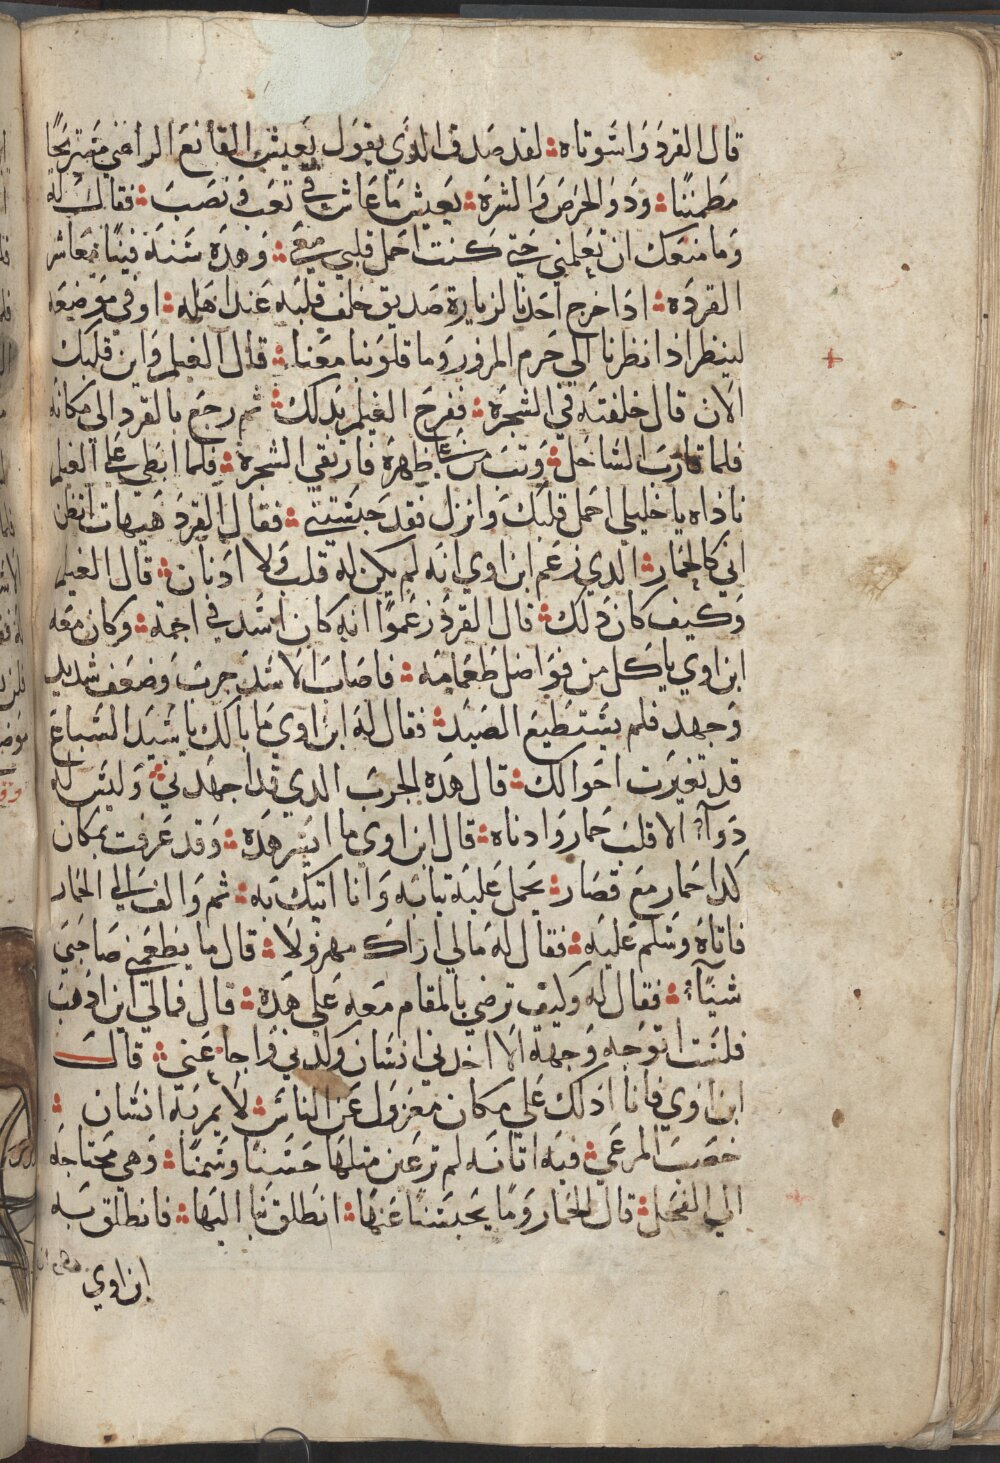 قال القرد واسوتاه؞ لقد صدق الذي يقول يعيش القانع الراضي مستريحًا
مطمئنًا؞ ودو الحرص والشره؞ يعيش ما عاش في تعب ونصب؞ فقال له
وما منعك ان تعلمني حتي كنت احمل قلبي معي؞ وهذه سنة فينا معاشر
القرده؞ ادا خرج احدنا لزيارة صديق خلف قلبه عند اهله؞ او في موضعه
لينظر اذا نظرنا الي حرم المزور وما قلوبنا معنا؞ قال الغيلم واين قلبك
الان قال خلفته في الشجره؞ ففرح الغيلم بدلك؞ ثم رجع بالقرد الي مكانه
فلما قارب الساحل؞ وتب من علي ظهره فارتقي الشجرة؞ فلما ابطي علي الغيلم
ناداه يا خليلي احمل قلبك وانزل فقد حبستني؞ فقال القرد هيهات اتظن
اني كالحمار؞ الدي زعم ابن اوي انه لم يكن له قلب ولا ادنان؞ قال الغيلم
وكيف كان دلك؞ قال القرد زعموا انه كان اسد في اجمة؞ وكان معه
ابن اوي ياكل من فواضل طعامه؞ فاصاب الاسد جرب وضعف شديد
وجهد فلم يستطيع الصيد؞ فقال له ابن اوي ما بالك يا سيد السباع
قد تغيرت احوالك؞ قال هذه الجرب الدي قد اجهدني؞ وليس له
دوآء الا قلب حمار وادناه؞ قال ابن اوي ما ايسر هده؞ وقد عرفت بمكان
كدا حمار مع قصار؞ يحمل عليه تيابه وانا اتيك به؞ ثم والف الي الحمار
فاتاه وسلم عليه؞ فقال له مالي اراك مهزولا؞ قال ما يطعمني صاحبي
شيئآء؞ فقال له وكيف ترضي بالمقام معه علي هده؞ قال فمالي اين ادهب
فلست اتوجه وجهه الا اخدني انسان وكدني واجاعني؞ قال
ابن اوي فانا ادلك علي مكان معزول عن الناس؞ لا يمر به انسان؞
خصب المرعي؞ فيه اتانه لم تر عين متلها حسنا وسمنًا؞ وهي محتاجه
الي الفحل؞ قال الحمار وما يحبسنا عنها؞ انطلق بنا اليها؞ فانطلق به
ابن اوي